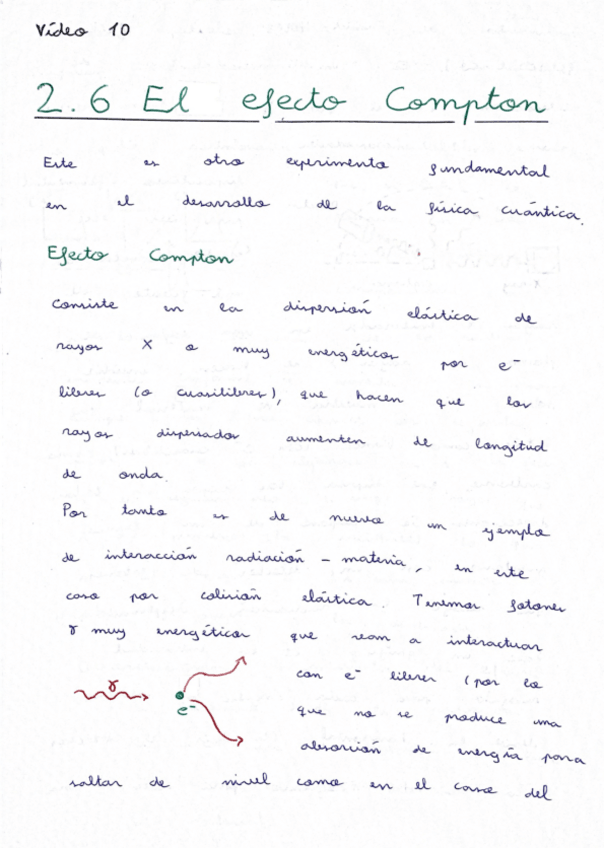 Vídeo 10
2.6 El efecto Compton
Este es otro experimento fundamental
en el desarrollo de la física cuántica.
Efecto Compton
Consiste en la dispersión elástica de
rayos X o muy energéticos por e⁻
libres (o cuasilibres), que hacen que los
rayos dispersados aumenten de longitud
de onda.
Por tanto es de nuevo un ejemplo
de interacción radiación - materia, en este
caso por colisión elástica. Tenemos fotones
γ muy energéticos que vean a interactuar
con e⁻ libres (por lo
que no se produce una
absorción de energía para
saltar de nivel como en el caso del
γ
e⁻